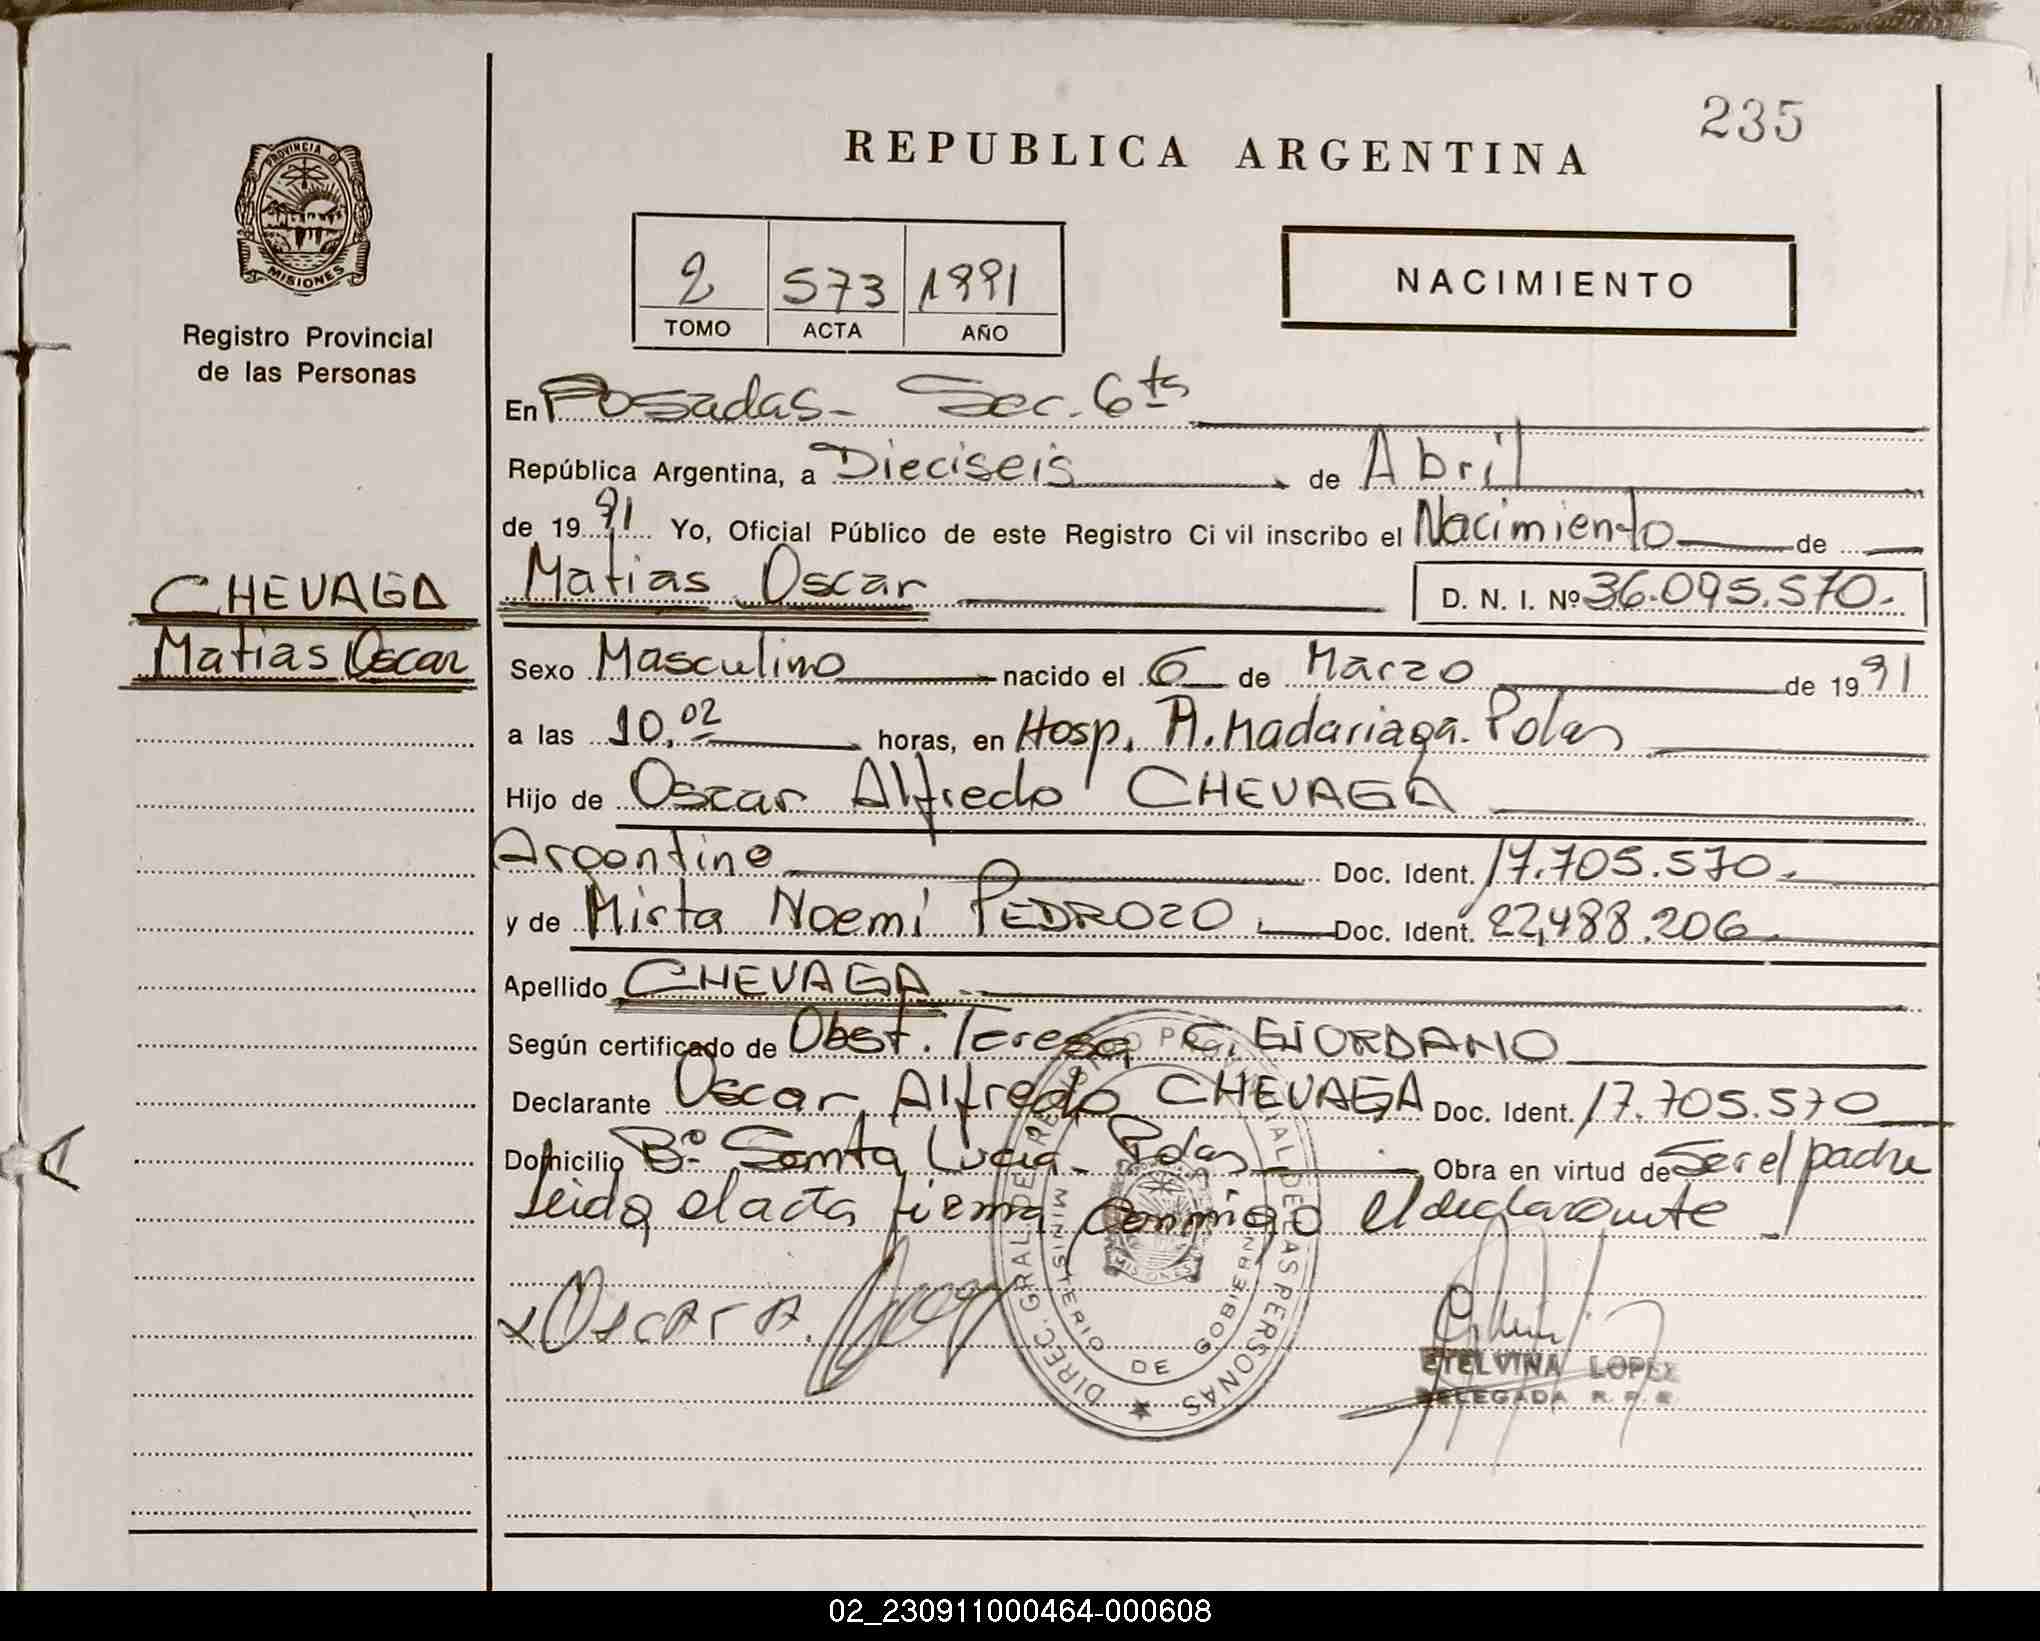 235
REPUBLICA ARGENTINA
PROVINCIA D
MISIONES
Registro Provincial
de las Personas
2 573 1991
TOMO ACTA AÑO
NACIMIENTO
En Posadas - Sec. 6ta
República Argentina, a Dieciseis de Abril
de 1991 Yo, Oficial Público de este Registro Ci vil inscribo el Nacimiento de
CHEVAGA
Matias Oscar
Matias Oscar D. N. I. Nº 36.095.570.
Sexo Masculino nacido el 6 de Marzo de 1991
a las 10,02 horas, en Hosp. R. Madariaga. Pdas
Hijo de Oscar Alfredo CHEVAGA
Argentino Doc. Ident. 17.705.570.
y de Mirta Noemi PEDROZO Doc. Ident. 22,488.206
Apellido CHEVAGA
Según certificado de Obst. Teresa C. GIORDANO
Declarante Oscar Alfredo CHEVAGA Doc. Ident. 17.705.570
Domicilio Bº Santa Lucia - Pdas Obra en virtud de Ser el padre
Leida el acta firma conmigo el declarante
OscAr A.
DIREC. GRAL DE REGISTRO PROVINCIAL DE LAS PERSONAS
MINISTERIO DE GOBIERNO
MISIONES
ETELVINA LOPEZ
DELEGADA R. P. P.
02_230911000464-000608